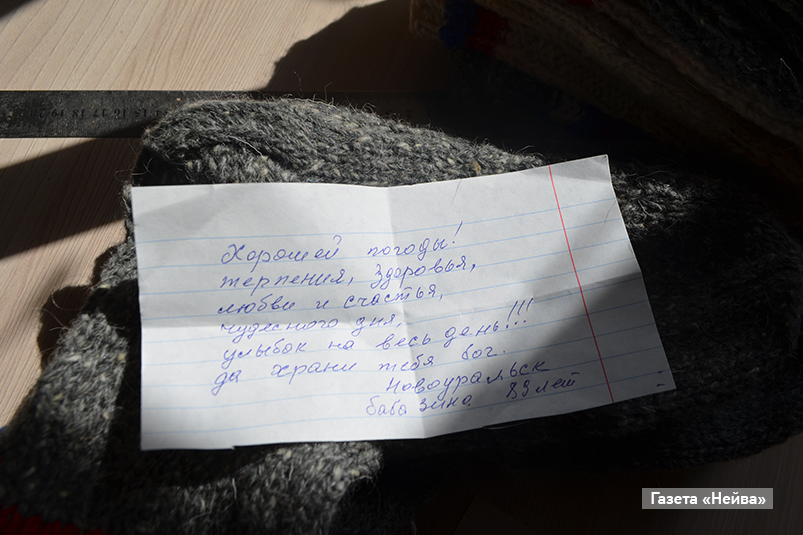 Хорошей погоды!
терпения, здоровья,
любви и счастья,
чудесного дня,
улыбок на весь день!!!
да храни тебя бог.
Новоуральск
баба Зина 89 лет
Газета «Нейва»